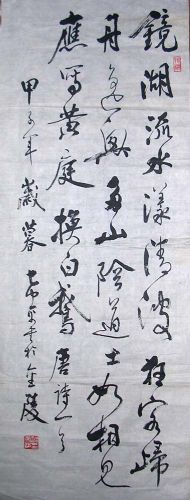 鏡湖流水漾清波狂客歸
舟逸興多山陰道士如相見
應寫黄庭換白鵝 唐詩一首
甲子年歲暮 於金陵